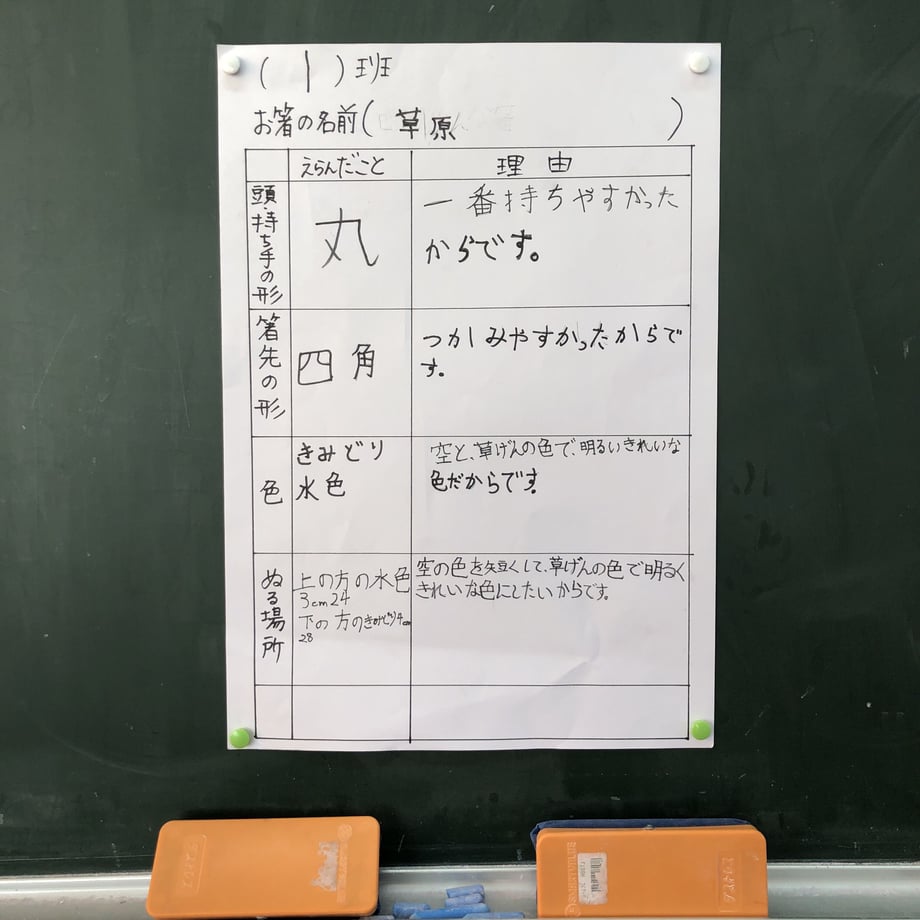 (1)班
お箸の名前(草原)
えらんだこと 理由
頭・持ち手の形
丸
一番持ちやすかった
からです。
箸先の形
四角
つかしみやすかったからで
す。
色
きみどり
水色
空と、草げんの色で、明るいきれいな
色だからです。
ぬる場所
上の方の水色
3cm24
下の方のきみどり4cm
28
空の色を短くして、草げんの色で明るく
きれいな色にしたいからです。